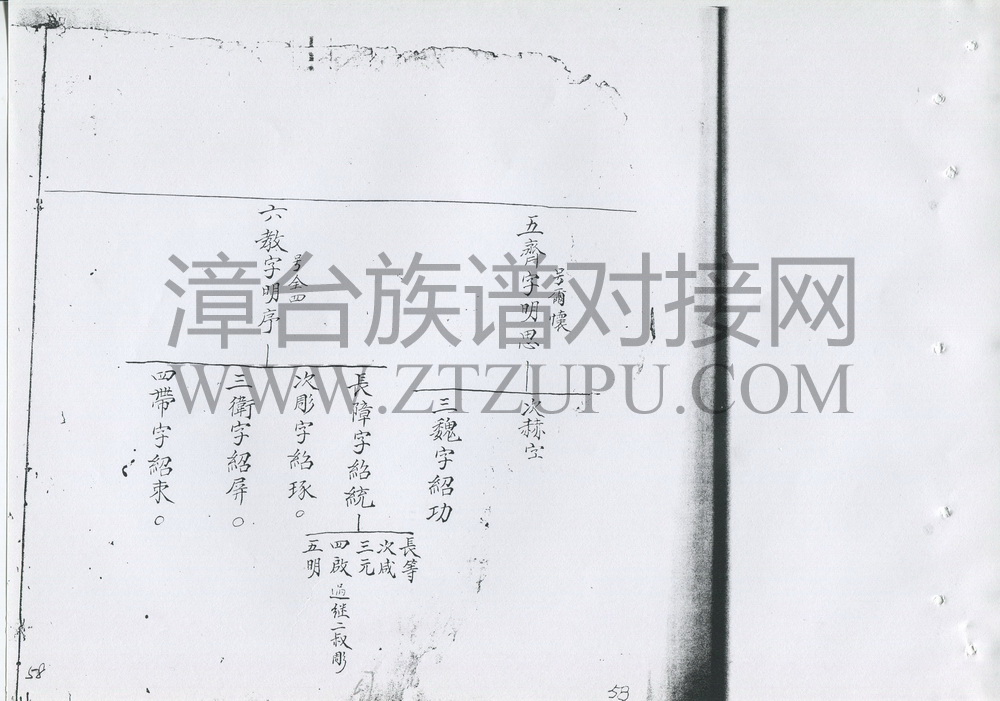 五齊字明思
号爾懷
次赫字
三魏字紹功
六教字明序
号金四
長障字紹統
次彫字紹琢。
三衛字紹屏。
四帶字紹束。
長等
次咸
三元
四啟過継二叔彫
五明
漳台族谱对接网
WWW.ZTZUPU.COM
58
53